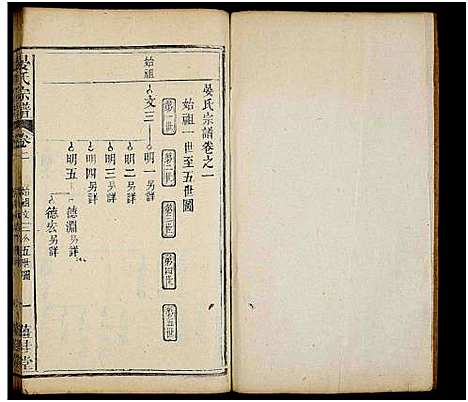 晏氏宗譜卷之一
始祖一世至五世圖
第一世
第二世
第三世
第四世
第五世
始祖
文三
明一另詳
明二另詳
明四另詳
明五
德淵另詳
德宏另詳
晏氏宗譜
卷一
始祖文三公五世圖
一